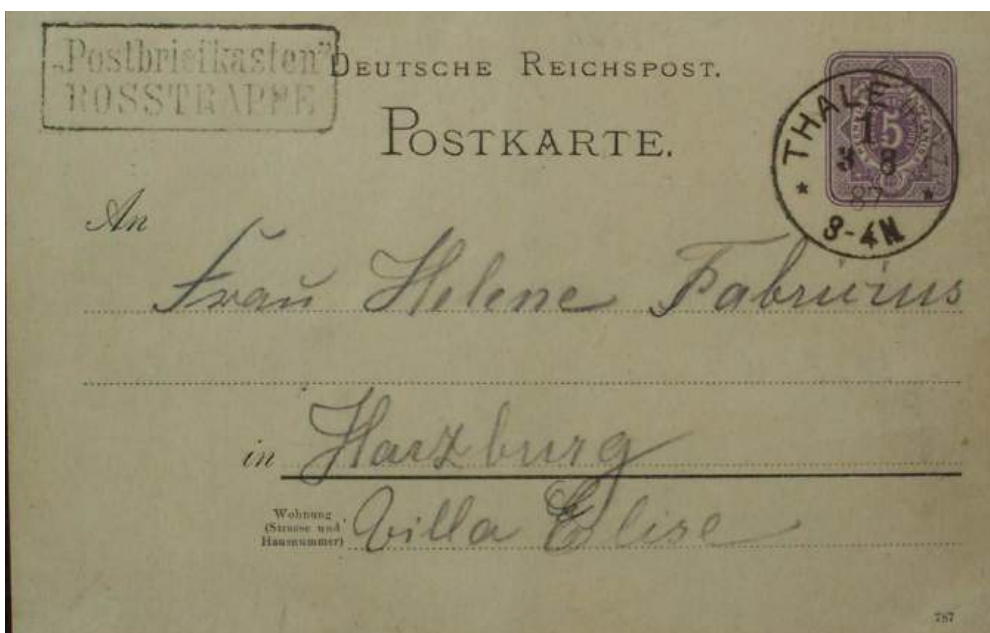 „Postbriefkasten”
ROSSTRAPPE
DEUTSCHE REICHSPOST.
POSTKARTE.
THALE
1
3 8
87
3-4N
5
An
Frau Helene Fabricius
in Harzburg
Wohnung
(Strasse und
Hausnummer)
Villa Elise
787